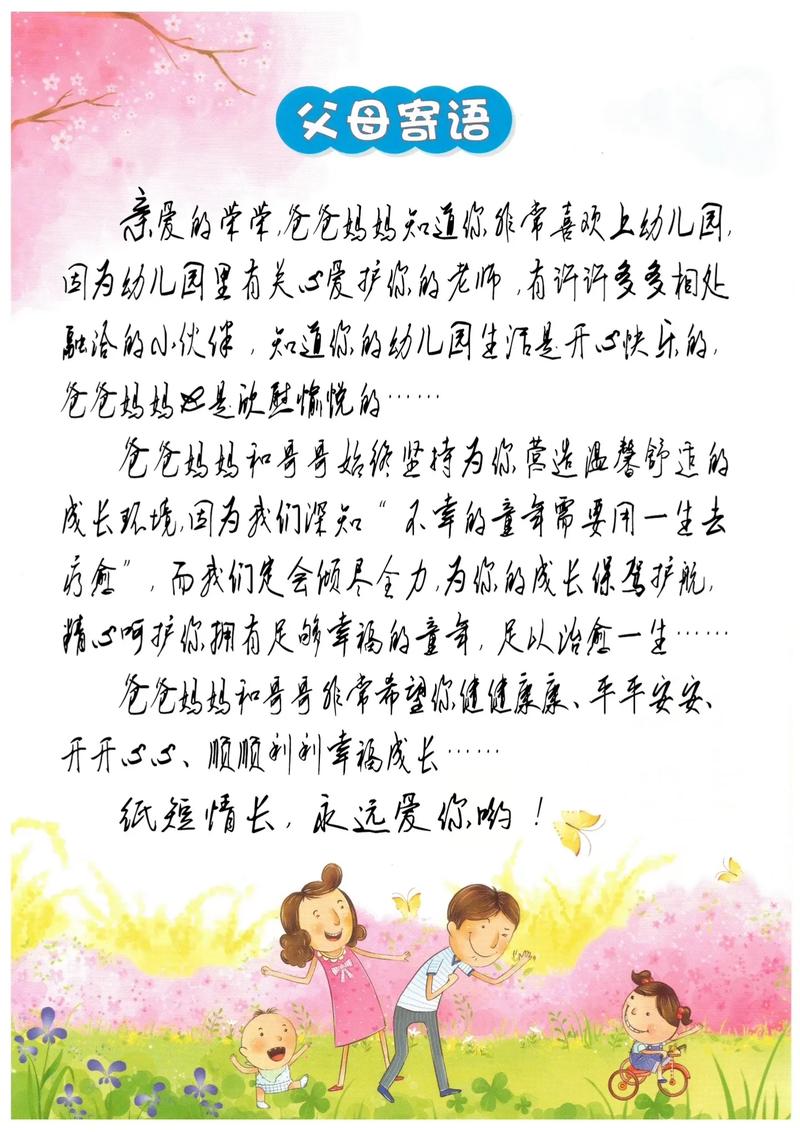 父母寄语
亲爱的荣荣,爸爸妈妈知道你非常喜欢上幼儿园,
因为幼儿园里有关心爱护你的老师,有许许多多相处
融洽的小伙伴,知道你的幼儿园生活是开心快乐的,
爸爸妈妈也是欣慰愉悦的……
爸爸妈妈和哥哥始终坚持为你营造温馨舒适的
成长环境,因为我们深知“不幸的童年需要用一生去
疗愈”,而我们定会倾尽全力,为你的成长保驾护航,
精心呵护你拥有足够幸福的童年,足以治愈一生……
爸爸妈妈和哥哥非常希望你健健康康、平平安安、
开开心心、顺顺利利幸福成长……
纸短情长,永远爱你哟!